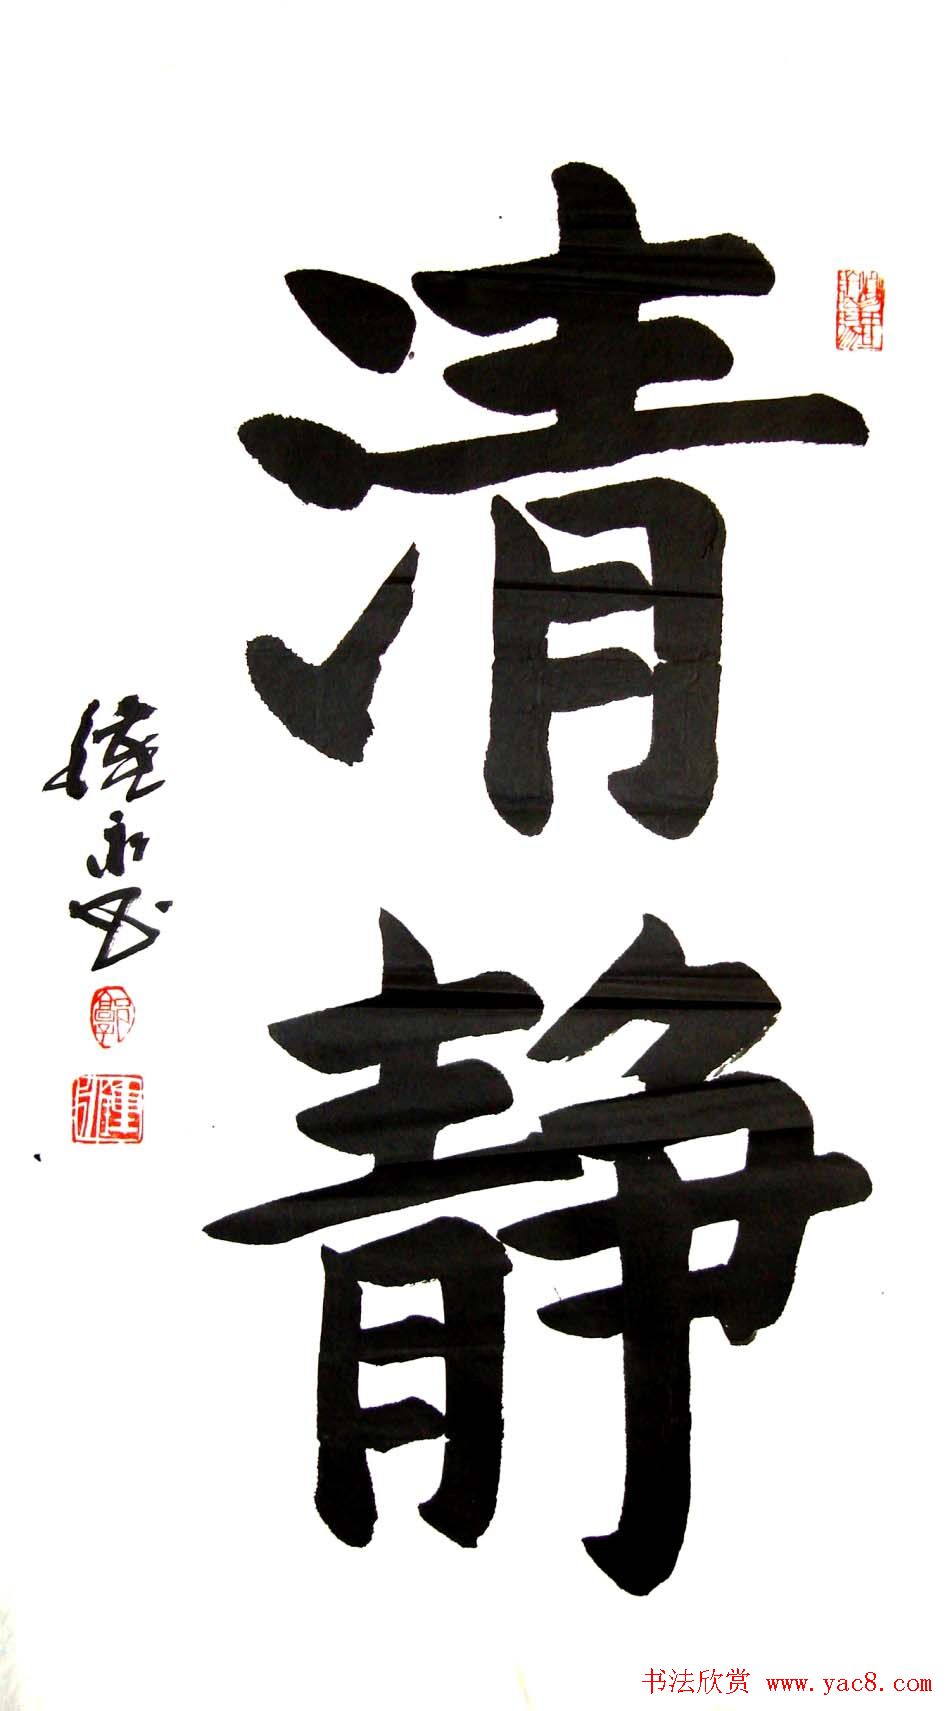 清静
书法欣赏 www.yac8.com